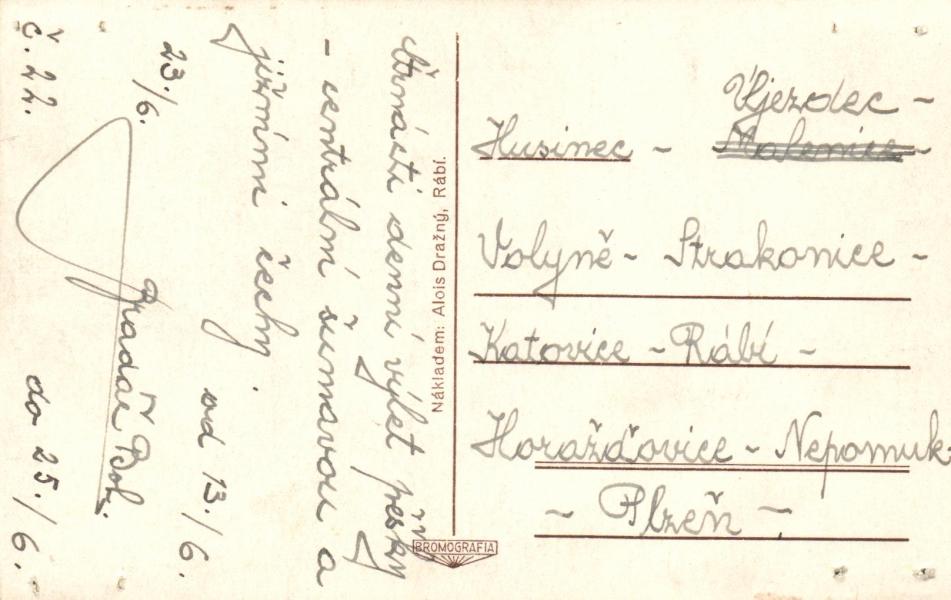 č. 22.
23./6.
Čtrnácti denní výlet pěšky
- centrální šumavou a
jižními čechy.
od 13./6.
do 25./6.
Nákladem: Alois Dražný, Rábí.
BROMOGRAFIA
Újezdec -
Husinec - Malenice -
Volyně - Strakonice -
Katovice - Rábí -
Horažďovice - Nepomuk
- Plzeň -